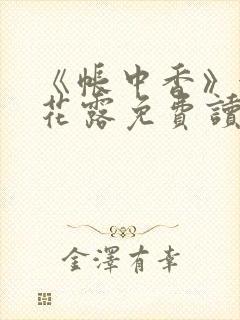 《帳中香》
花露免費讀
金澤有幸